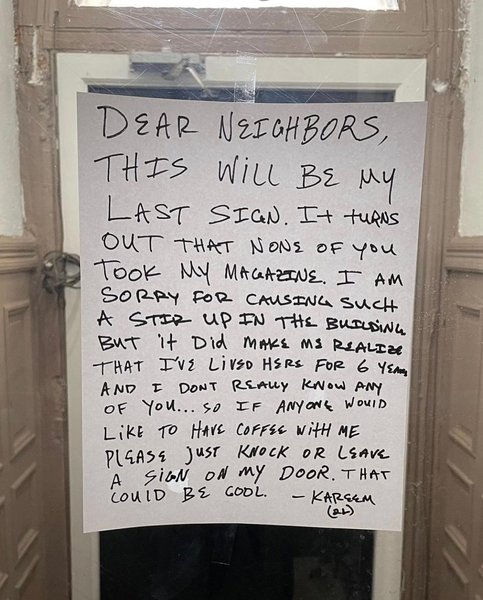 DEAR NEIGHBORS,
THIS WILL BE MY
LAST SIGN. IT TURNS
OUT THAT NONE OF YOU
TOOK MY MAGAZINE. I AM
SORRY FOR CAUSING SUCH
A STIR UP IN THE BUILDING
BUT IT DID MAKE ME REALIZE
THAT I'VE LIVED HERE FOR 6 YEARS
AND I DONT REALLY KNOW ANY
OF YOU... SO IF ANYONE WOULD
LIKE TO HAVE COFFEE WITH ME
PLEASE JUST KNOCK OR LEAVE
A SIGN ON MY DOOR. THAT
COULD BE COOL. - KAREEM
(2L)